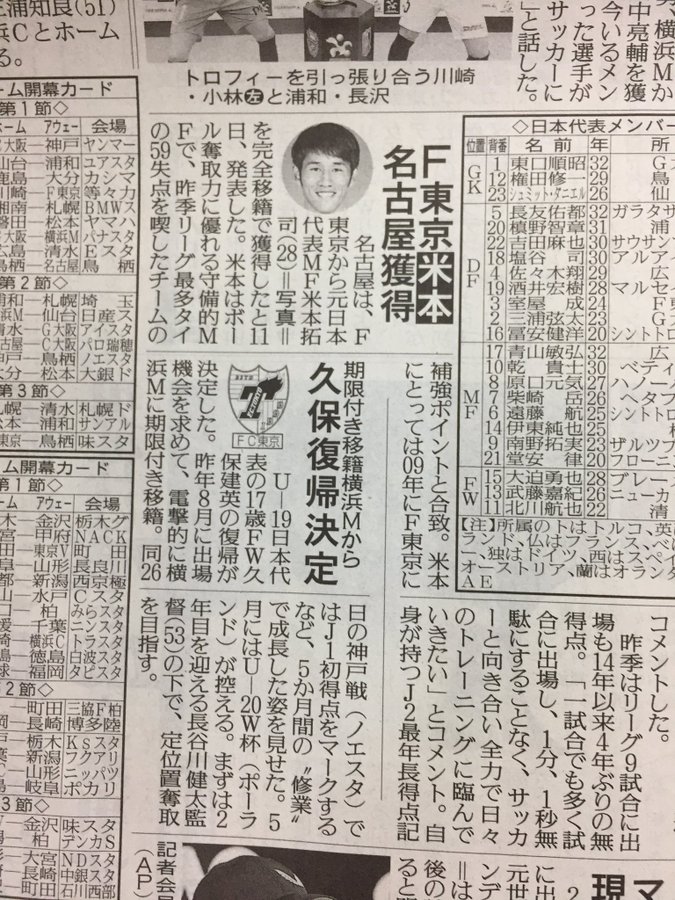 三浦知良(51)
浜Cとホーム
る。
トロフィーを引っ張り合う川崎
・小林左と浦和・長沢
中亮輔を獲
横浜Mか
今いるメン
った選手が
サッカーに
」と話した。
F東京米本
名古屋獲得
名古屋は、F
東京から元日本
代表MF米本拓
司(28)＝写真＝
を完全移籍で獲得したと11
日、発表した。米本はボー
ル奪取力に優れる守備的M
Fで、昨季リーグ最多タイ
の59失点を喫したチームの
補強ポイントと合致。米本
にとっては09年にF東京に
久保復帰決定
期限付き移籍横浜Mから
FC東京
U―19日本代
表の17歳FW久
保建英の復帰が
決定した。昨年8月に出場
機会を求めて、電撃的に横
浜Mに期限付き移籍。同26
日の神戸戦（ノエスタ）で
はJ1初得点をマークする
など、5か月間の〝修業〟
で成長した姿を見せた。5
月にはU―20W杯（ポーラ
ンド）が控える。まずは2
年目を迎える長谷川健太監
督(53)の下で、定位置奪取
を目指す。
コメントした。
昨季はリーグ9試合に出
場も14年以来4年ぶりの無
得点。「一試合でも多く試
合に出場し、1分、1秒無
駄にすることなく、サッカ
ーと向き合い全力で日々
のトレーニングに臨んで
いきたい」とコメント。自
身が持つJ2最年長得点記
◇日本代表メンバー
位置 背番 名前 所
GK
1 東口順昭 32 G
12 権田修一 29 鳥
23 シュミット・ダニエル 26 仙
DF
5 長友佑都 32 ガラタサ
20 槙野智章 31 浦
22 吉田麻也 30 サウサン
18 塩谷司 30 アルアイ
4 佐々木翔 29 広
19 酒井宏樹 28 マルセイ
3 室屋成 24 F東
2 三浦弦太 23 G大
16 冨安健洋 20 シントトロ
MF
17 青山敏弘 32 広
10 乾貴士 30 ベティ
8 原口元気 27 ハノーバ
7 柴崎岳 26 ヘタフ
6 遠藤航 25 シントトロ
14 伊東純也 25 柏
9 南野拓実 23 ザルツブ
21 堂安律 20 フローニ
FW
15 大迫勇也 28 ブレーメ
13 武藤嘉紀 26 ニューカ
11 北川航也 22 清
【注】所属のトはトルコ、英は
ランド、仏はフランス、ベはベ
ー、独はドイツ、西はスペイ
ーオーストリア、蘭はオランダ
AE
ーム開幕カード
第1節◇
ホーム アウェー 会場
C大阪―神戸 ヤンマー
仙台―浦和 ユアスタ
鹿島―大分 カシマ
川崎―F東京 等々力
湘南―札幌 BMWス
磐田―松本 ヤマハ
G大阪―横浜M パナスタ
広島―清水 Eスタ
鳥栖―名古屋 鳥栖
第2節◇
浦和―札幌 埼玉
横浜M―仙台 日産ス
清水―G大阪 アイスタ
名古屋―C大阪 パロ瑞穂
神戸―鳥栖 ノエスタ
大分―松本 大銀ド
第3節◇
札幌―清水 札幌ド
浦和―松本 サンアル
F東京―鳥栖 味スタ
ーム開幕カード
第1節◇
ホーム アウェー 会場
栃木―金沢 栃木グ
大宮―甲府 NACK
―東京V 町田
―山形 長良川
―新潟 西京極
―水戸 Cスタ
―柏 みらスタ
―千葉 ニンスタ
―横浜C トラスタ
―徳島 白波スタ
―福岡 タピスタ
2節◇
―町田 三協F柏
―長崎 博多陸
―栃木 Ksスタ
―新潟 フクアリ
―山形 ニッパツ
―岐阜 ポカリ
3節◇
―金沢 味スタ
―柏 デンカS
―大宮 NDスタ
―長崎 中銀スタ
―町田 石川西部
記者会見
(AP)